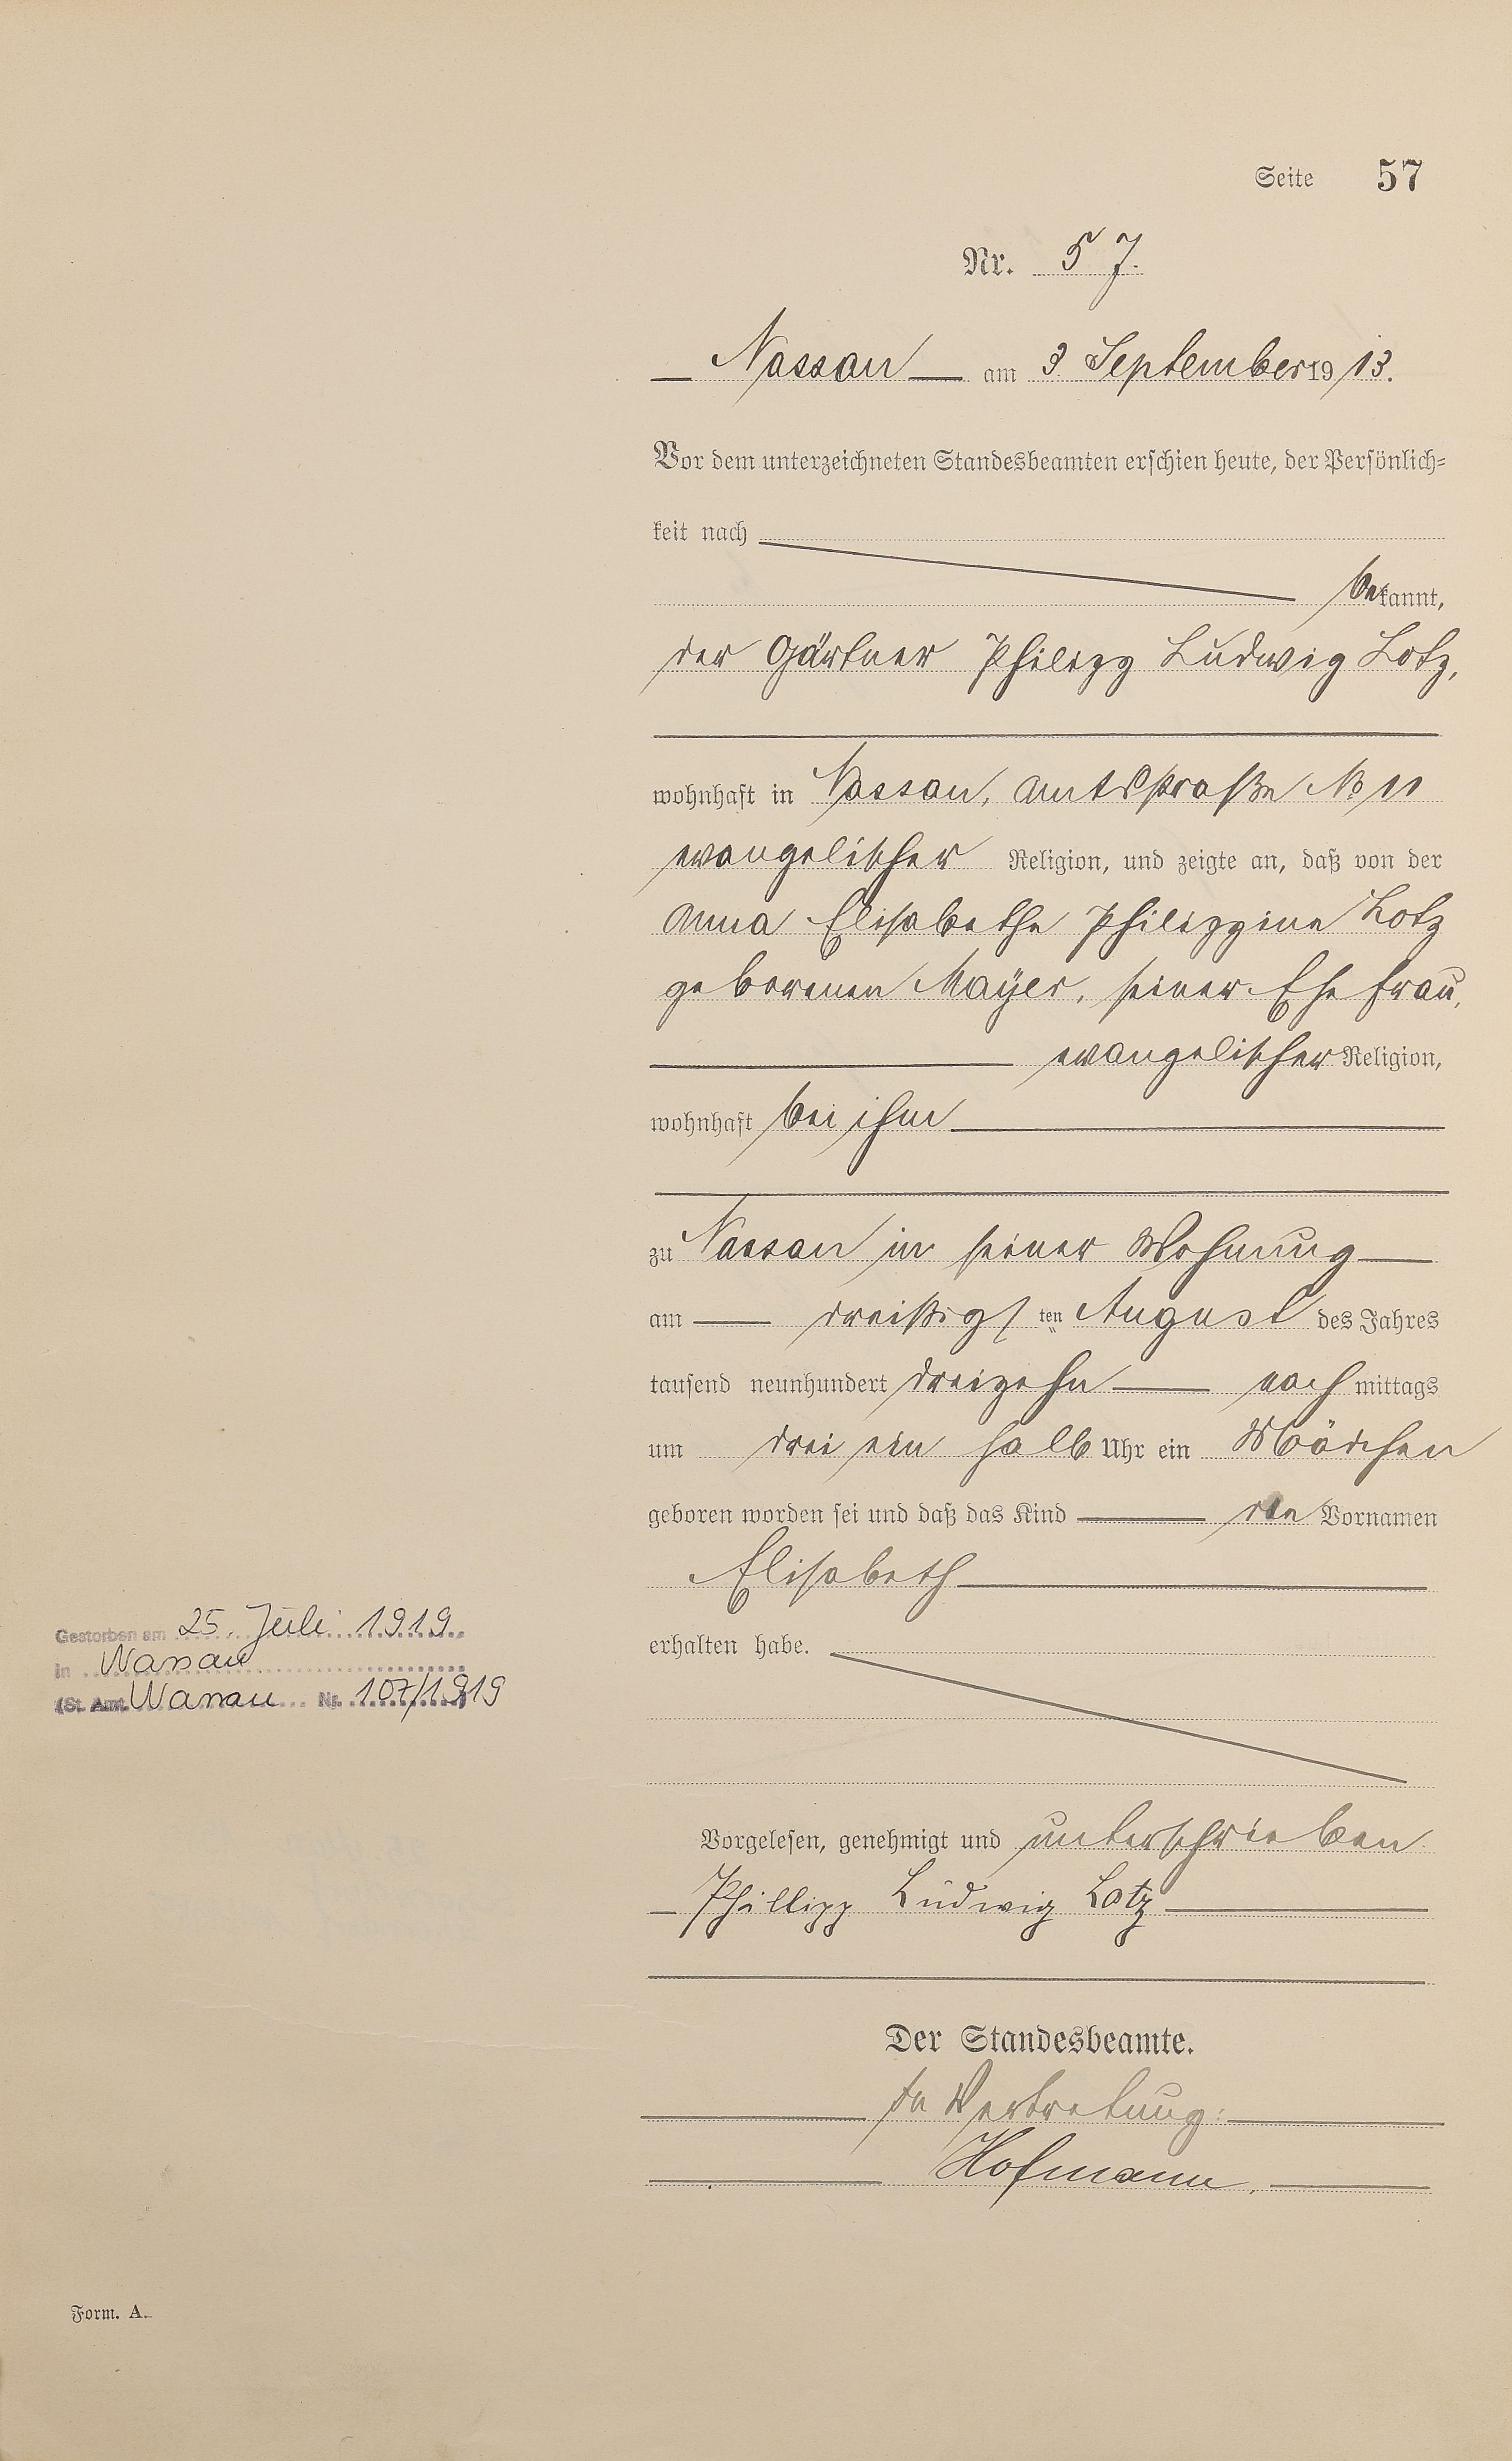 Seite 57
Nr. 57.
Nassau am 3 September 1913.
Vor dem unterzeichneten Standesbeamten erschien heute, der Persönlich=
keit nach
bekannt,
der Gärtner Philipp Ludwig Lotz,
wohnhaft in Nassau, Amtsstraße No 11
evangelischer Religion, und zeigte an, daß von der
Anna Elisabethe Philippine Lotz
geborenen Mayer, seiner Ehefrau,
evangelischer Religion,
wohnhaft bei ihm
zu Nassau in seiner Wohnung
am dreißigsten August des Jahres
tausend neunhundert dreizehn nachmittags
um drei ein halb Uhr ein Mädchen
geboren worden sei und daß das Kind den Vornamen
Elisabeth
erhalten habe.
Gestorben am 25. Juli 1919
in Nassau
(St. Amt Nassau Nr. 107/1919
Vorgelesen, genehmigt und unterschrieben
Phillipp Ludwig Lotz
Der Standesbeamte.
In Vertretung:
Hofmann.
Form. A.